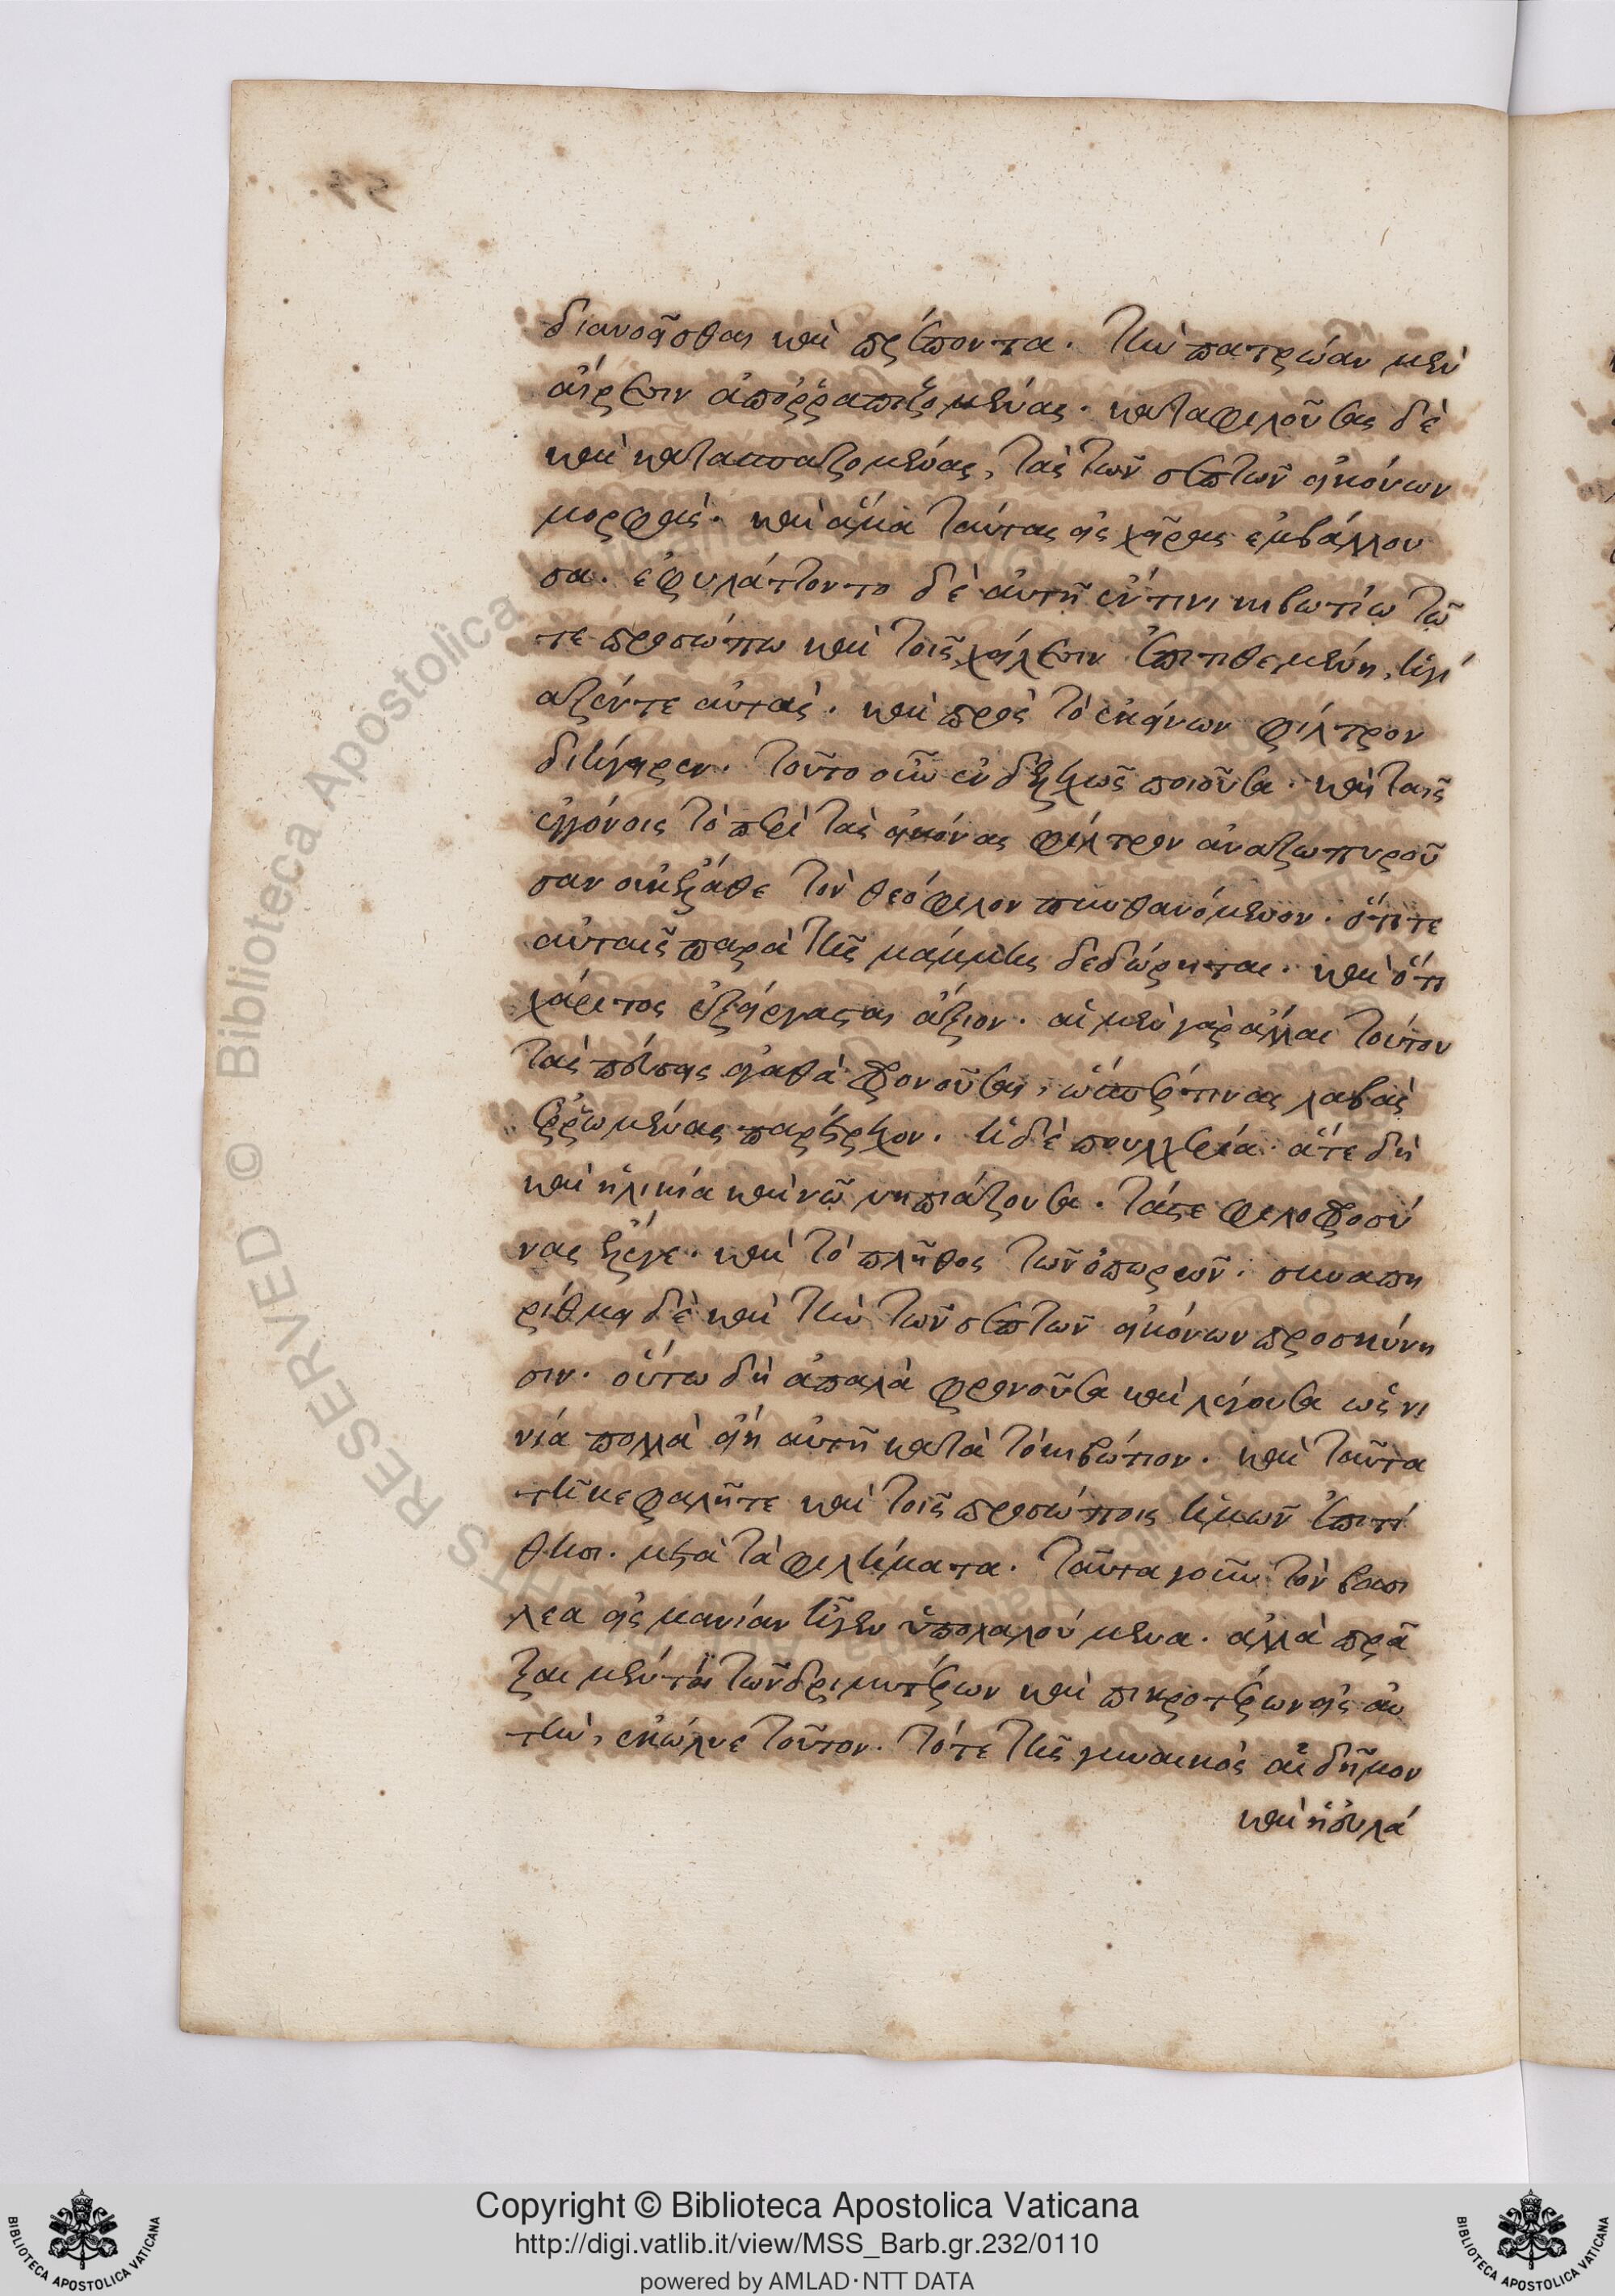 διανοεῖσθαι καὶ πρέποντα. τὴν πατρώαν μὲν
αἵρεσιν ἀποῤῥαπιζομένας. καταφιλούσας δὲ
καὶ κατασπαζομένας, τὰς τῶν σεπτῶν εἰκόνων
μορφὰς. καὶ ἅμα ταύτας εἰς χεῖρας ἐμβάλλου
σα. ἐφυλάττοντο δὲ αὐτῆ ἐν τινι κιβωτίω τῶ
τε προσώπω καὶ τοῖς χείλεσιν ἐπιτιθεμένη, ἡγί
αζέν τε αὐτὰς. καὶ πρὸς τὸ ἐκείνων φίλτρον
διήγειρεν. τοῦτο οὖν ἐνδελεχῶς ποιοῦσα. καὶ ταῖς
ἐγγόνοις τὸ περὶ τὰς εἰκόνας φίλτρον ἀναζωπυροῦ
σαν οὐκ ἔλαθε τὸν θεόφιλον πυνθανόμενον. ὅτι τε
αὐταῖς παρὰ τῆς μάμμης δεδώρηται. καὶ ὅτι
χάριτος ἐξείργασται ἄξιον. αἱ μὲν γὰρ ἄλλαι τούτου
τὰς πεύσεις
ἐῤῥωμένας παρέτρεχον. ἡ δὲ πουλχερία. ἅτε δὴ
καὶ ἡλικία καὶ νῶ νηπιάζουσα. τάς τε φιλοφροσύ
νας ἔλεγε. καὶ τὸ πλῆθος τῶν ὀπωρῶν. συναπη
ρίθμει δὲ καὶ τὴν τῶν σεπτῶν εἰκόνων προσκύνη
σιν. οὕτω δὴ ἁπαλὰ φρονοῦσα καὶ λέγουσα ὡς νι
νία πολλὰ εἴη αὐτῆ κατὰ τὸ κιβώτιον. καὶ ταῦτα
τῆ κεφαλῆ τε καὶ τοῖς προσώποις ἡμῶν ἐπιτί
θησι. μετὰ τὰ φιλήματα. ταῦτα γοῦν τὸν βασι
λέα εἰς μανίαν ἦγεν ὑπολαλούμενα. ἀλλὰ πρᾶ
ξαι μέν τι τῶν δριμυτέρων καὶ πικροτέρων εἰς αὐ
τὴν, ἐκώλυε τοῦτον. τό τε τῆς γυναικὸς αἰδῆμον
καὶ ἡ εὐλά